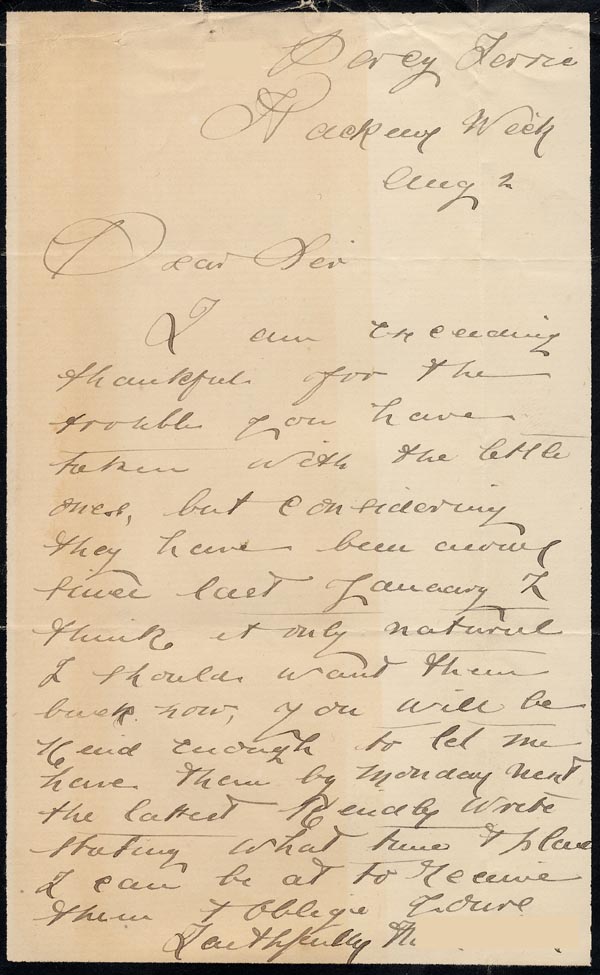 Percy Terrie
Hackney Wick
Aug 2
Dear Sir
I am exceeding
thankful for the
trouble you have
taken with the little
ones, but considering
they have been away
since last January I
think it only natural
I should want them
back now, you will be
Kind enough to let me
have them by Monday next
the lattest Kindly write
stating what time & place
I can be at to receive
them & oblige yours
Faithfully M.